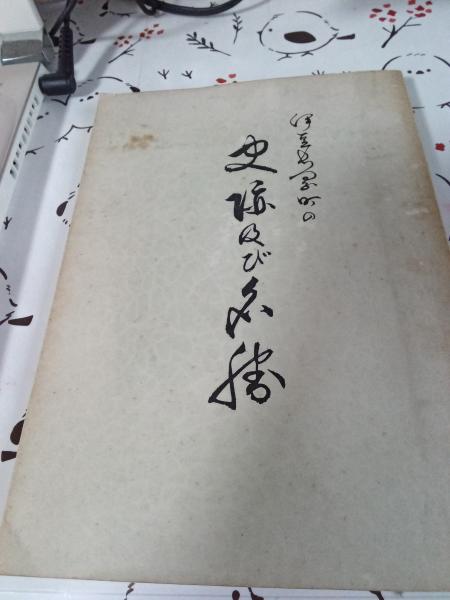 伊豆長岡町の
史跡及び名勝